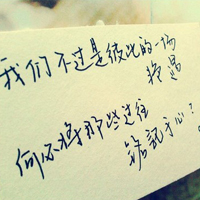 我们不过是彼此的一场
何必将那些过往
铭记于心?